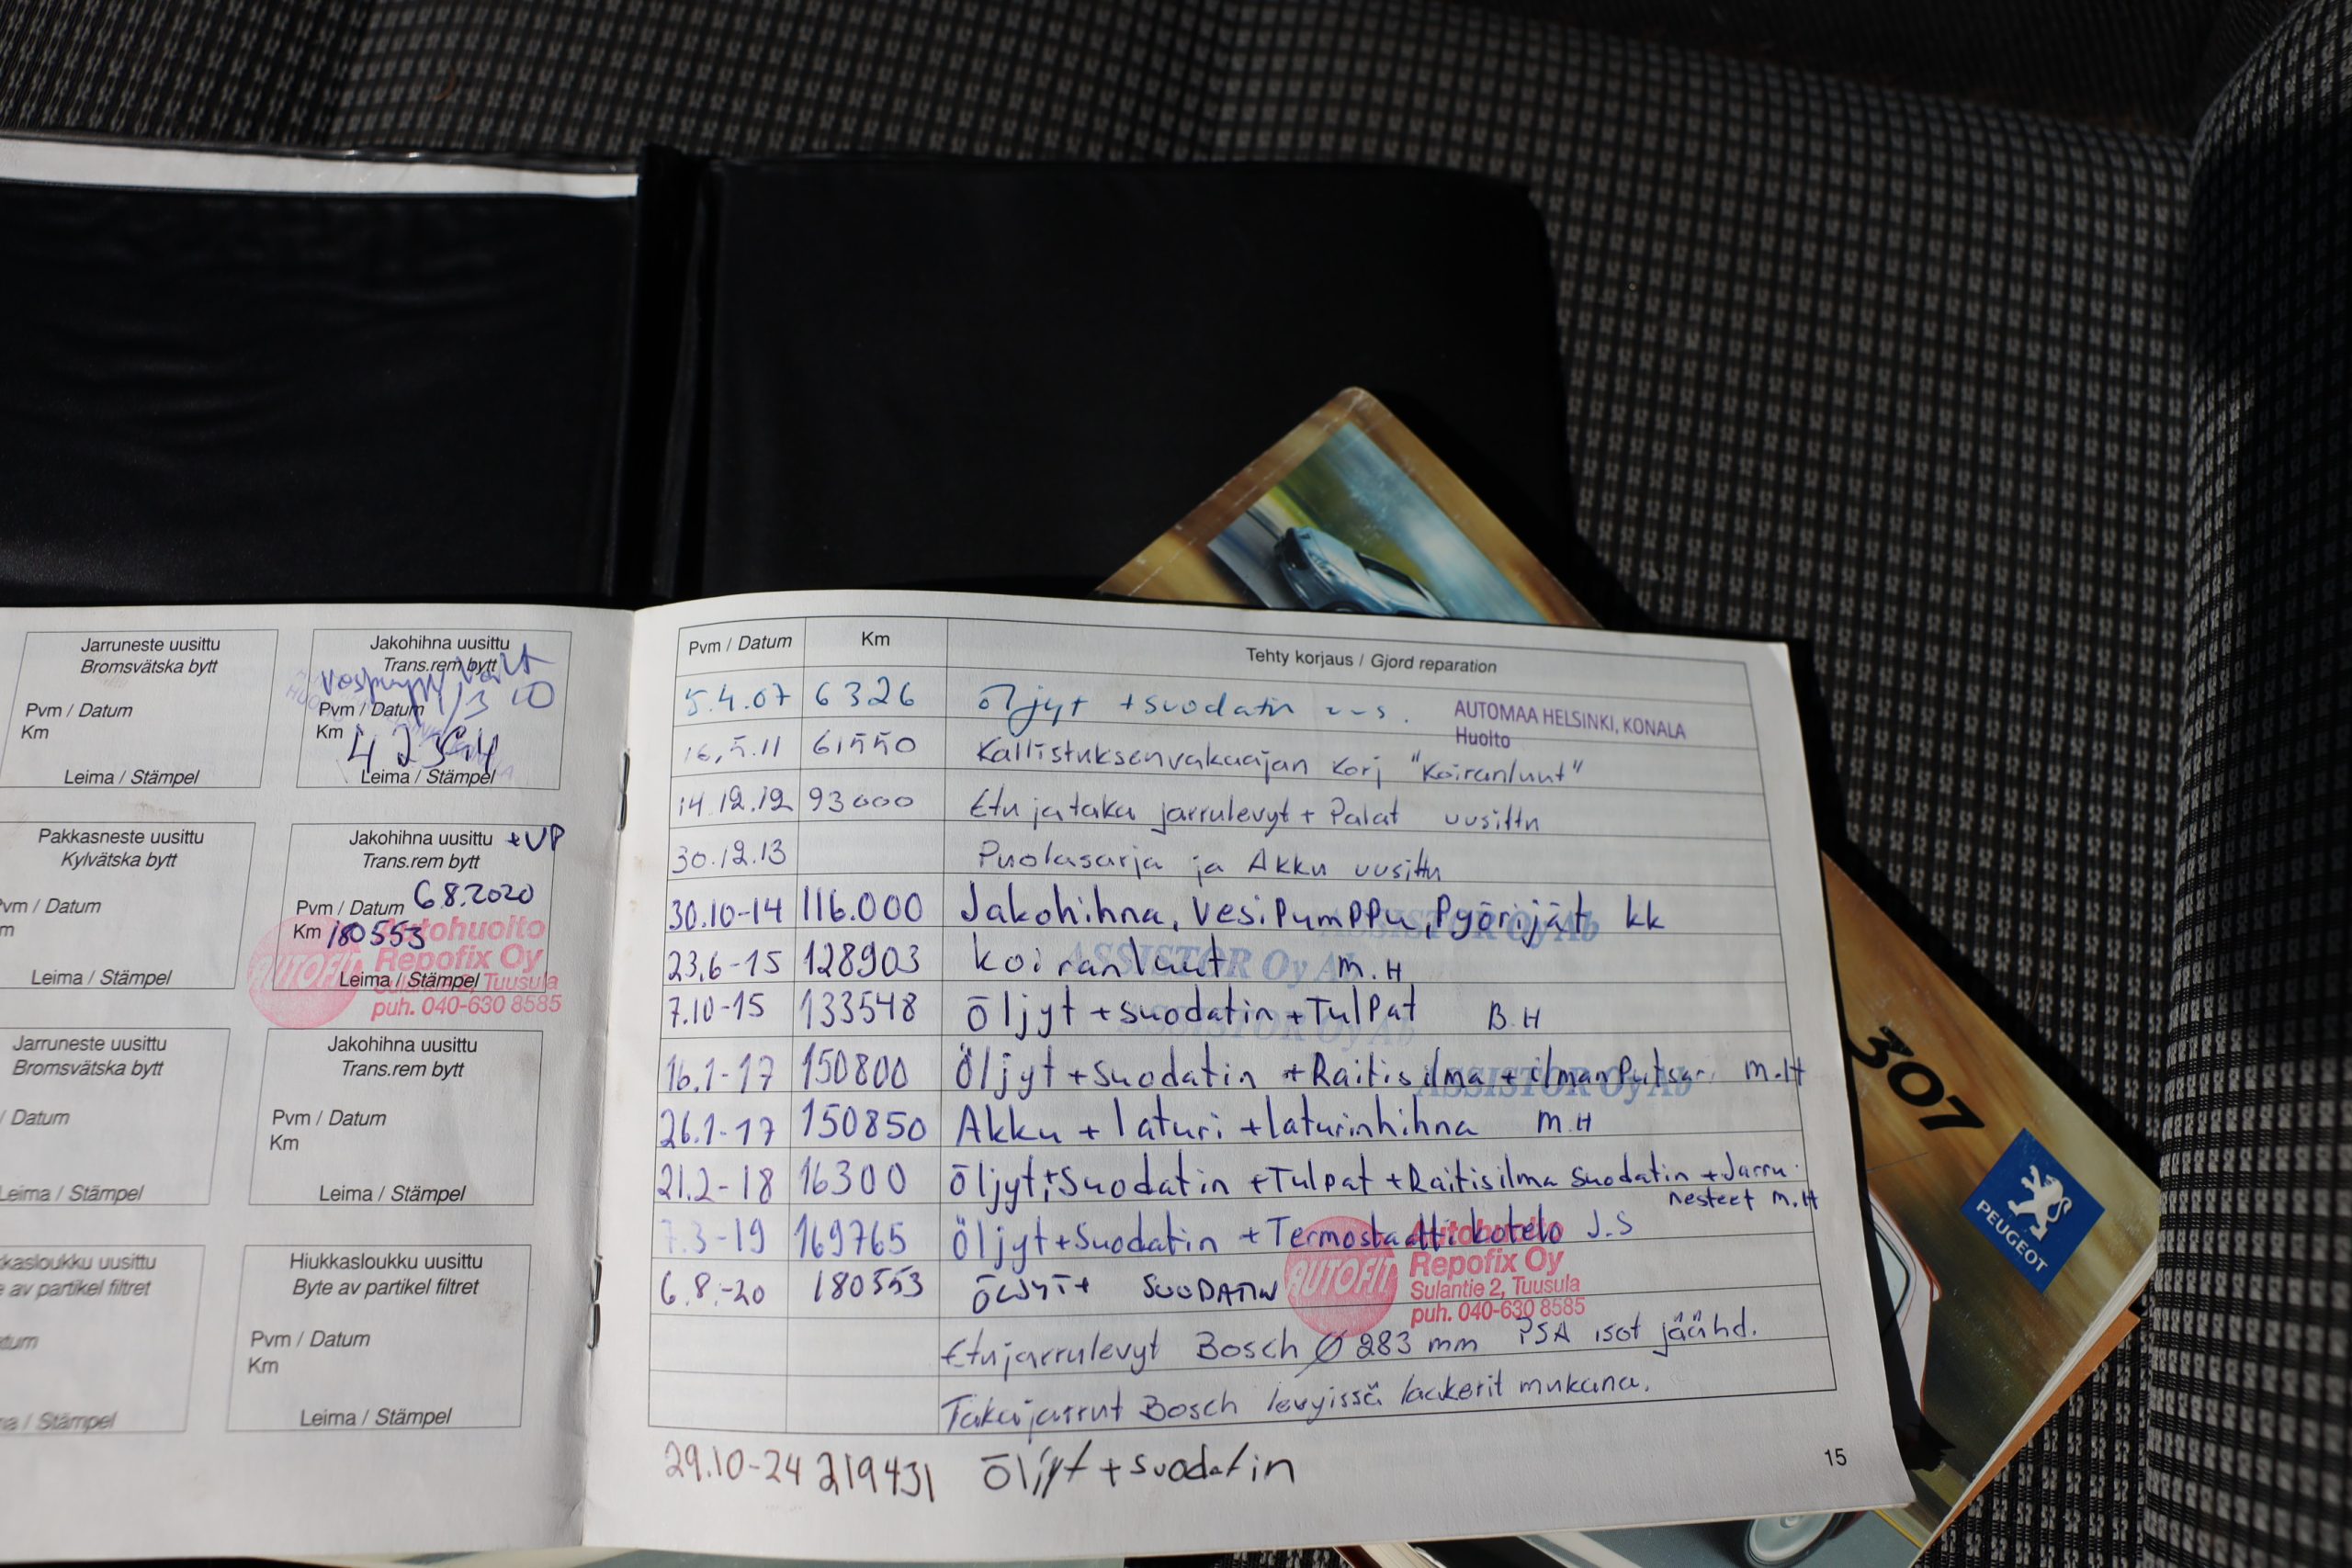 Jarruneste uusittu
Bromsvätska bytt
Pvm / Datum
Km
Leima / Stämpel
Jakohihna uusittu
Trans.rem bytt
Pvm / Datum
Km
Leima / Stämpel
Pakkasneste uusittu
Kylvätska bytt
vm / Datum
m
Leima / Stämpel
Jakohihna uusittu +VP
Trans.rem bytt
Pvm / Datum 6.8.2020
Km 180553
Leima / Stämpel
AUTOFIT
Autohuolto
Repofix Oy
Sulantie 2, Tuusula
puh. 040-630 8585
Jarruneste uusittu
Bromsvätska bytt
/ Datum
Leima / Stämpel
Jakohihna uusittu
Trans.rem bytt
Pvm / Datum
Km
Leima / Stämpel
kkasloukku uusittu
e av partikel filtret
tum
na / Stämpel
Hiukkasloukku uusittu
Byte av partikel filtret
Pvm / Datum
Km
Leima / Stämpel
Pvm / Datum Km Tehty korjaus / Gjord reparation
5.4.07 6326 öljyt + suodatin
AUTOMAA HELSINKI, KONALA
Huolto
16.5.11 61550 Kallistuksenvakaajan korj "Koiranluut"
14.12.12 93000 Etu ja taka jarrulevyt + Palat uusittu
30.12.13 Puolasarja ja Akku uusittu
30.10-14 116.000 Jakohihna, Vesipumppu, Pyörijät kk
ASSISTOR Oy Ab
23.6-15 128903 koiranluut M.H
ASSISTOR Oy Ab
7.10-15 133548 öljyt + suodatin + Tulpat B.H
ASSISTOR Oy Ab
16.1-17 150800 Öljyt + Suodatin + Raitisilma + ilmanputsari M.H
ASSISTOR Oy Ab
26.1-17 150850 Akku + laturi + laturinhihna M.H
21.2-18 16300 öljyt + Suodatin + Tulpat + Raitisilma Suodatin + Jarru
nesteet M.H
7.3-19 169765 Öljyt + Suodatin + Termostaatti kotelo J.S
6.8.-20 180553 ÖLJYT+ SUODATIN
AUTOFIT
Autohuolto
Repofix Oy
Sulantie 2, Tuusula
puh. 040-630 8585
Etujarrulevyt Bosch Ø 283 mm PSA isot jäähd.
Takajarrut Bosch levyissä laakerit mukana.
29.10-24 219431 Öljyt + suodatin
15
307
PEUGEOT